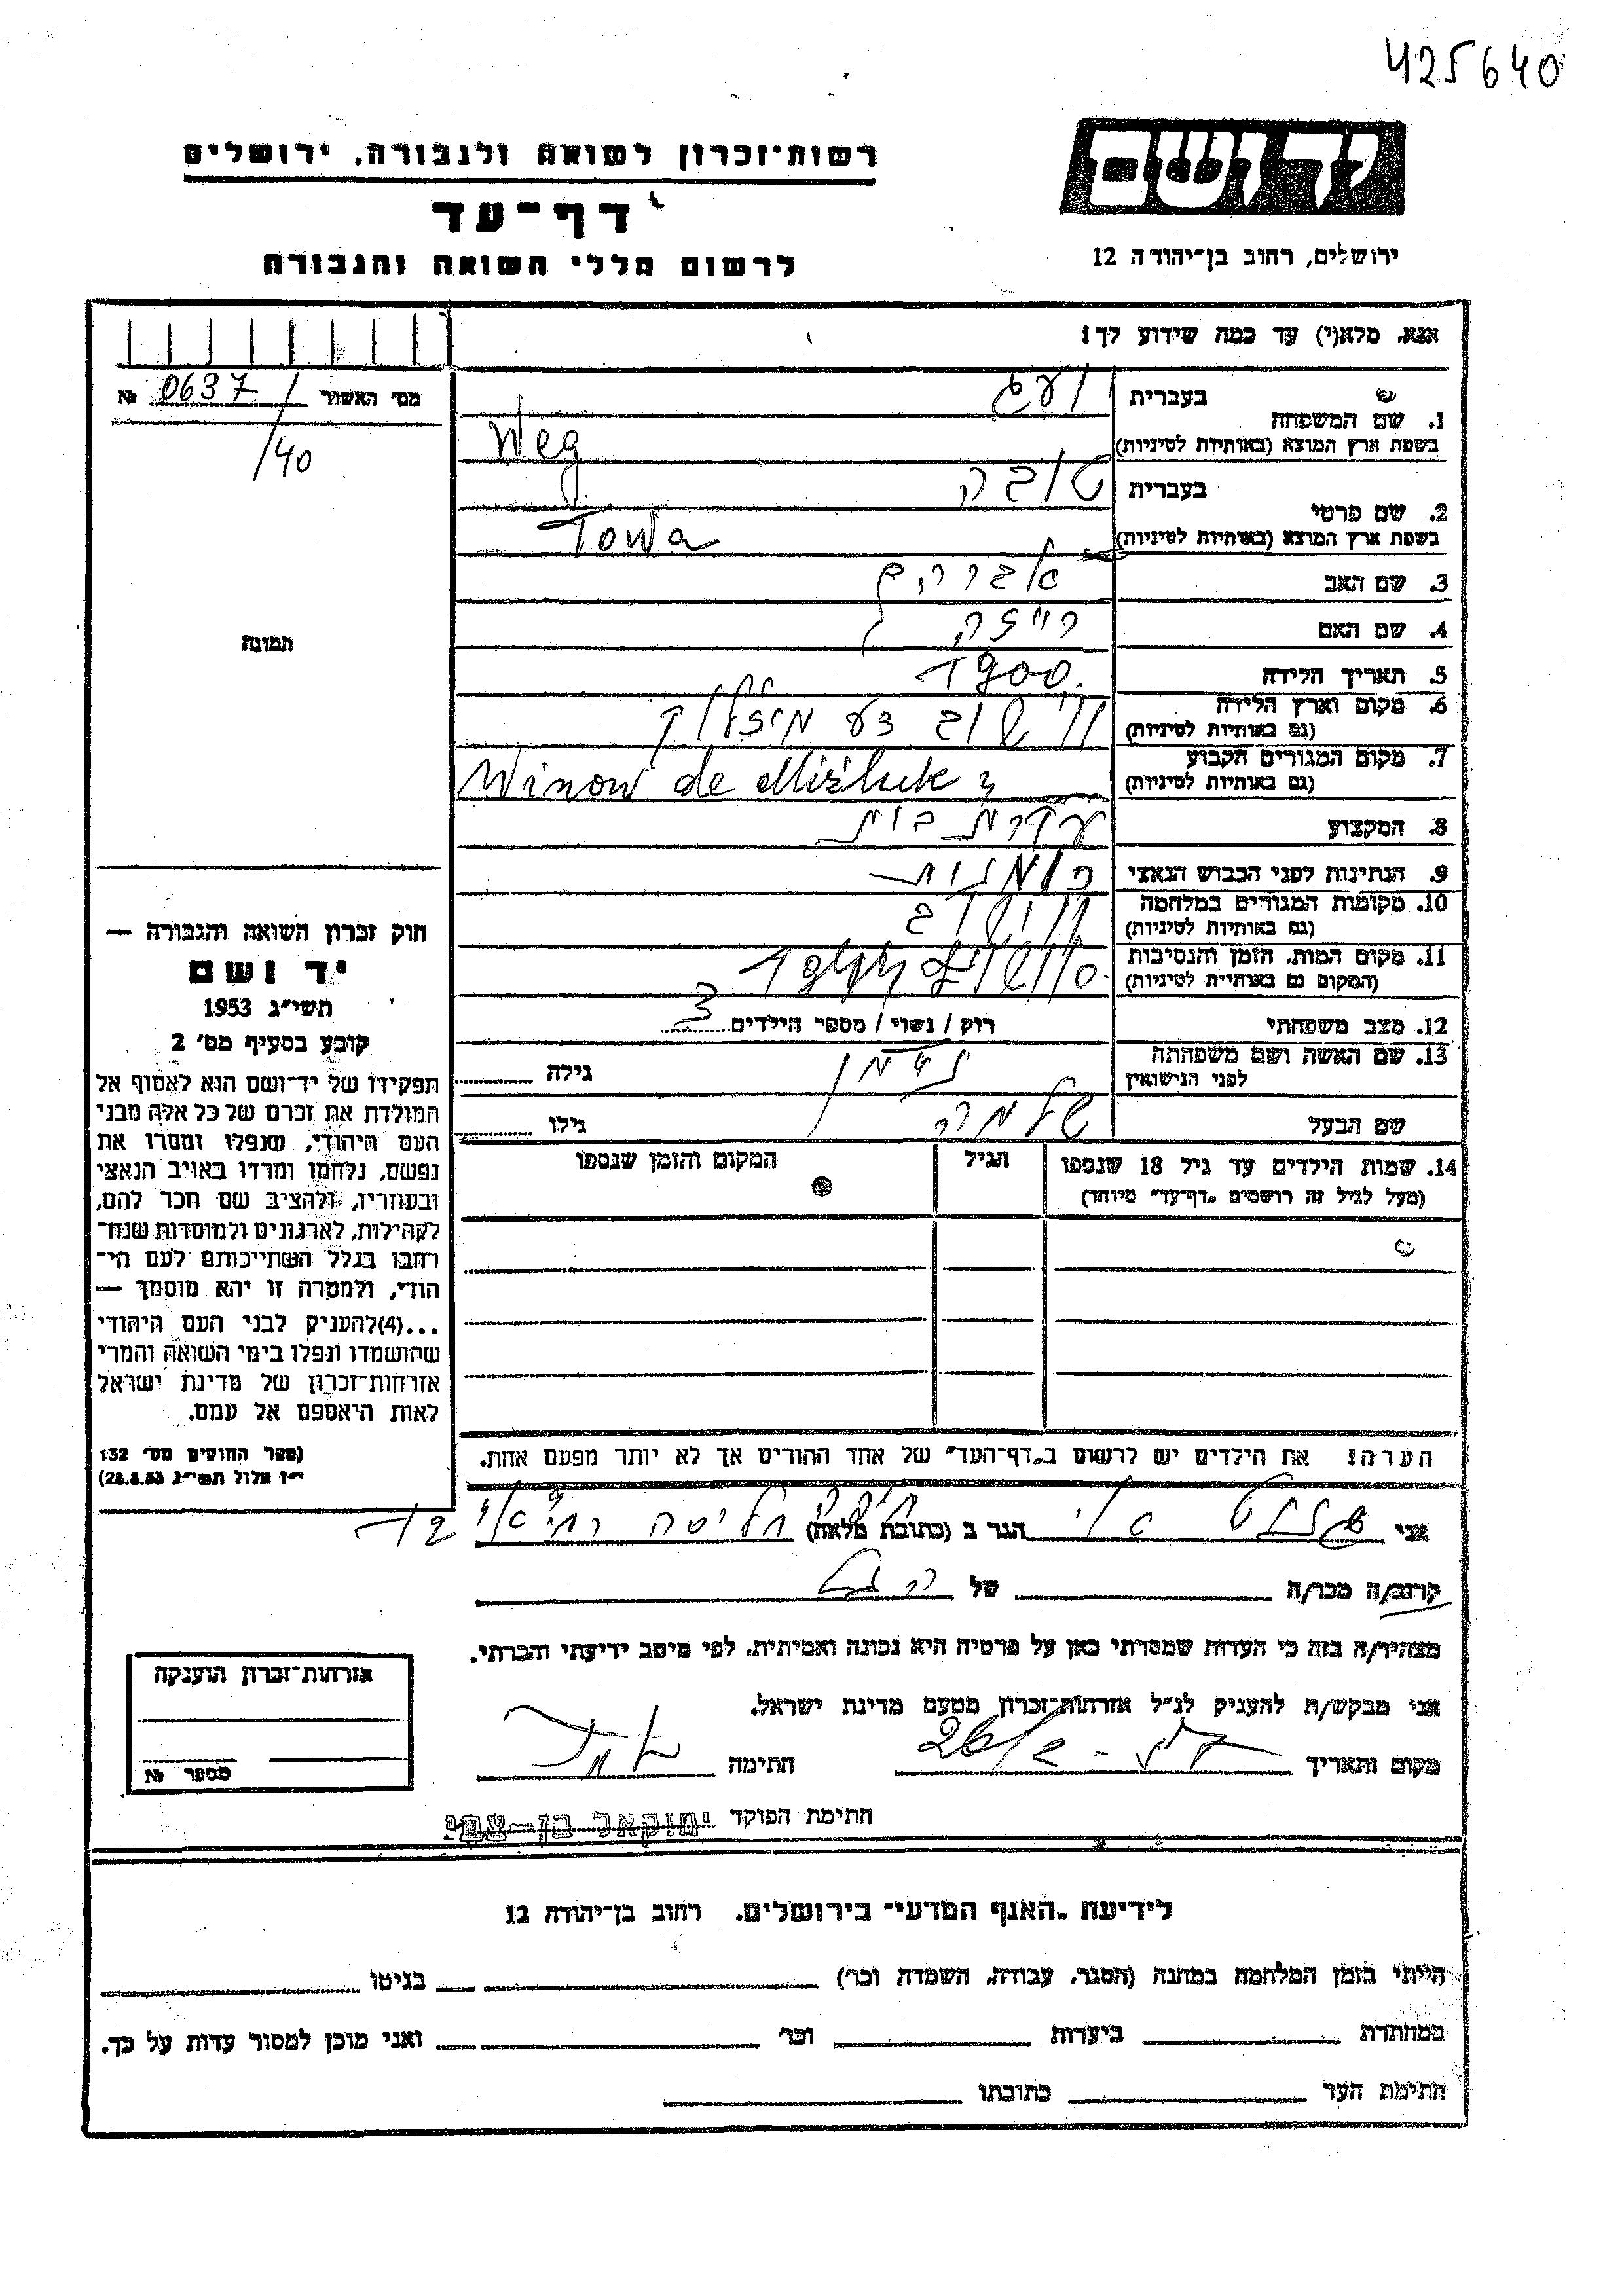 425640
יד ושם
רשות־זכרון לשואה ולגבורה, ירושלים
דף־עד
לרשום חללי השואה והגבורה
ירושלים, רחוב בן־יהודה 12
אנא, מלא(י) עד כמה שידוע לך!
מס' האשור 0637/ №
/40
תמונה
1. שם המשפחה בעברית וועג
בשפת ארץ המוצא (באותיות לטיניות) Weg
2. שם פרטי בעברית טובה
בשפת ארץ המוצא (באותיות לטיניות) Towa
3. שם האב אברהם
4. שם האם רייזה
5. תאריך הלידה 1900
6. מקום וארץ הלידה
(גם באותיות לטיניות)
7. מקום המגורים הקבוע
(גם באותיות לטיניות)
8. המקצוע עקרת בית
9. הנתינות לפני הכבוש הנאצי רומנית
10. מקומות המגורים במלחמה
(גם באותיות לטיניות)
11. מקום המות, הזמן והנסיבות
(המקום גם באותיות לטיניות)
12. מצב משפחתי רוק / נשוי / מספר הילדים 3
13. שם האשה ושם משפחתה
לפני הנישואין
גילה
שם הבעל שלמה גילו
14. שמות הילדים עד גיל 18 שנספו
(מעל לגיל זה רושמים „דף־עד" מיוחד)
הגיל
המקום והזמן שנספו
חוק זכרון השואה והגבורה —
יד ושם
תשי״ג 1953
קובע בסעיף מס׳ 2
תפקידו של יד־ושם הוא לאסוף אל
המולדת את זכרם של כל אלה מבני
העם היהודי, שנפלו ומסרו את
נפשם, נלחמו ומרדו באויב הנאצי
ובעוזריו, ולהציב שם וזכר להם,
לקהילות, לארגונים ולמוסדות שנח־
רבו בגלל השתייכותם לעם הי־
הודי, ולמטרה זו יהא מוסמך —
...(4)להעניק לבני העם היהודי
שהושמדו ונפלו בימי השואה והמרי
אזרחות־זכרון של מדינת ישראל
לאות היאספם אל עמם.
(ספר החוקים מס׳ 132
י״ז אלול תשי״ג 28.8.53)
הערה! את הילדים יש לרשום ב„דף־העד" של אחד ההורים אך לא יותר מפעם אחת.
אני הגר ב (כתובת מלאה)
קרוב/ה מכר/ה של
מצהיר/ה בזה כי העדות שמסרתי כאן על פרטיה היא נכונה ואמיתית, לפי מיטב ידיעתי והכרתי.
אני מבקש/ת להעניק לנ״ל אזרחות־זכרון מטעם מדינת ישראל.
מקום ותאריך חתימה
חתימת הפוקד יחזקאל בן-צבי
אזרחות־זכרון הוענקה
מספר №
לידיעת „האגף המדעי" בירושלים, רחוב בן־יהודה 12
הייתי בזמן המלחמה במחנה (הסגר, עבודה, השמדה וכו׳) בגיטו
במחתרת ביערות וכו׳ ואני מוכן למסור עדות על כך.
חתימת העד כתובתו